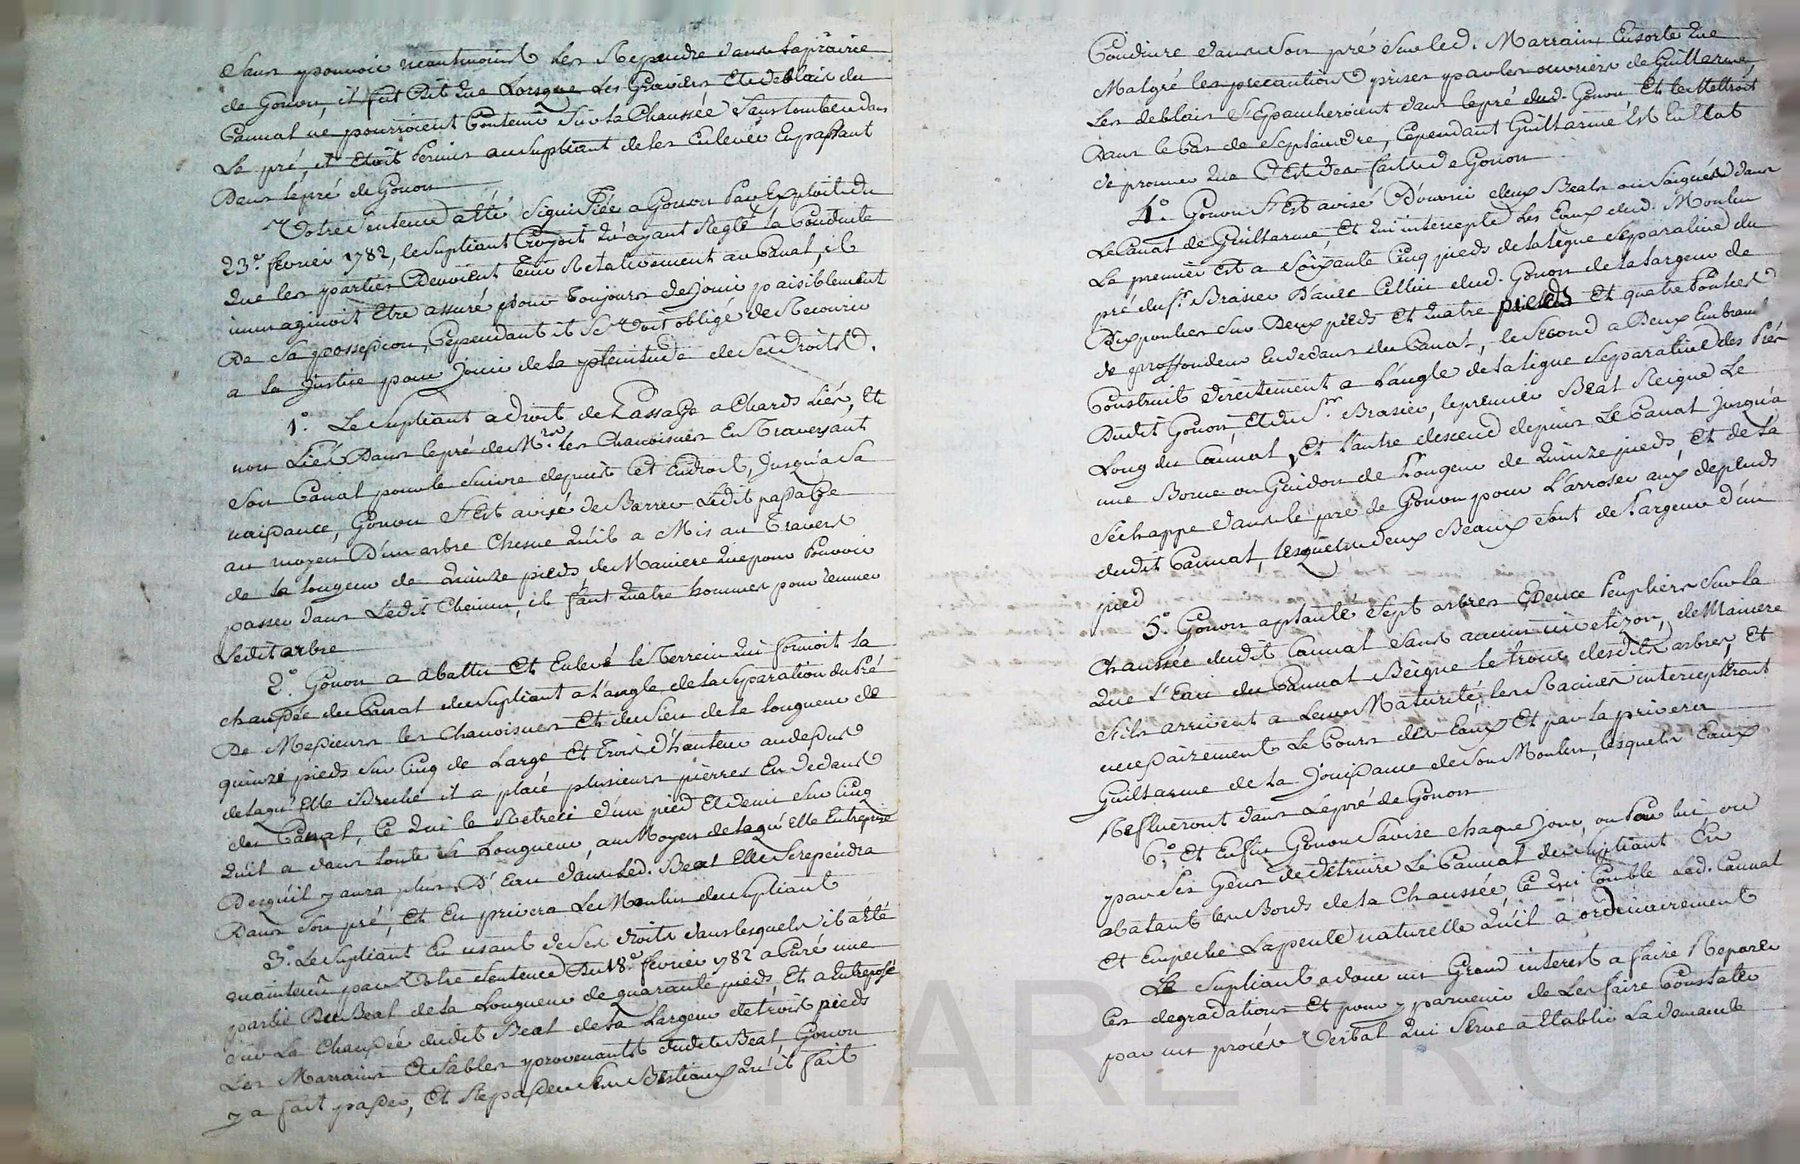 Sans pouvoir neantmoins les Repandre dans la prairie
de Gonon, il fut dit que Lorsque Les Graviers et deblais du
Cannal ne pourroient Contenir sur la Chaussée sans tomber dans
Le pré, il etoit permis au supliant de les Enlever En passant
Dans le pré de Gonon
Votre Sentence a été signiffiée a Gonon Par Exploit du
23e. fevrier 1782, le supliant Croyoit qu'ayant Reglé la Conduite
que les parties Devoient tenir Relativement au Canal, il
immaginoit être assuré pour toujours de jouir paisiblement
De sa possession, Cependant il se voit obligé de Recourir
a la justice pour jouir de la plenitude de ses droits.
1°. Le supliant a droit de Passage a Chards Liés, et
non Liés Dans le pré de Mrs. les Chanoines En Traversant
son Canal pour le suivre depuis cet Endroit, jusqu'a sa
naissance, Gonon s'Est avisé de Barrer Ledit passage
au moyen D'un arbre Chesne qu'il a Mis au Travers
de la longeur de quinze pieds de Maniere que pour Pouvoir
passer dans Ledit Chemin, il faut quatre hommes pour remuer
Ledit arbre
2°. Gonon a abattu et Enlevé le Terrein qui formoit la
chaussée du Canal du supliant a l'angle de la separation du Pré
De Messieurs les Chanoines et du sien de la longueur de
quinze pieds sur cinq de Large et trois d'hauteur audessus
de laqu'Elle Breche il a placé plusieurs pierres En dedans
du Canal, ce qui le Retreci d'un pied et demi sur cinq
qu'il a dans toute sa Longueur, au Moyen de laqu'Elle Entreprise
Desqu'il y aura plus D'Eau dans led. Beal Elle se rependra
Dans son pré, et En privera Le Moulin du supliant
3°. Le supliant En usant de ses droits dans lesquels il a été
maintenu par Votre Sentence Du 18e. fevrier 1782 a Curé une
partie Du Beal de la Longueur de quarante pieds, et a Entreposé
sur La Chaussée dudit Beal de la Largeur de trois pieds
Les Marrains et sables provenants dudit Beal Gonon
y a fait passer, et Repasser ses Bestiaux qu'il fait
Conduire dans son pré sur led. Marrain, Ensorte que
Malgré les precautions prises par les ouvriers de Guillarme,
Les deblais s'Epancheroient dans le pré dud. Gonon et le Mettroit
Dans le Cas de se plaindre, Cependant Guillarme Est En Etat
de prouver que C'Est des faits de Gonon
4°. Gonon s'Est avisé D'ouvrir deux Beals ou saignées dans
Le Canal de Guillarme, et qui intercepte Les Eaux dud. Moulin
Le premier est a soixante Cinq pieds de la ligne separative du
pré du sr. Brasier D'avec Celluy dud. Gonon de la largeur de
Dix pouces sur Deux pieds et quatre pieds et quatre Pouces
de proffondeur En dedans du Canal, le second a Deux Embran
Construit directement a l'angle de la ligne separative des Prés
Dudit Gonon, et du Sr. Brasier, le premier Beal Reigne Le
Long du Cannal, et l'autre descend depuis Le Canal Jusqu'a
une Borne ou Guidon de Longeur de quinze pieds, et de La
s'echappe dans le pré de Gonon pour L'arroser aux depends
dudit Cannal, lesquels deux Beaux sont de Largeur d'un
pied
5°. Gonon a planté sept arbres Essence Peupliers sur la
Chaussée dudit Cannal sans aucun, de Maniere
que l'Eau du Cannal Beigne le tronc desdits arbres, et
s'ils arrivent a leur Maturité, les Racines intercepteront
necessairement Le Cours des Eaux et par la privera
Guillarme de la Jouissance de son Moulin, lesquels Eaux
Reflueront dans Le pré de Gonon
6°. Et Enfin Gonon s'avise chaque jour, ou Par lui, ou
par ses Gens de detruire Le Cannal du supliant En
abatant les Bords de la Chaussée, ce qui Comble Led. Cannal
et Empeche La pente naturelle qu'il a ordinairement
Le supliant a donc un Grand interest a faire Reparer
ces degradations et pour y parvenir de Les faire Constater
par un procés Verbal qui serve a Etablir La demande